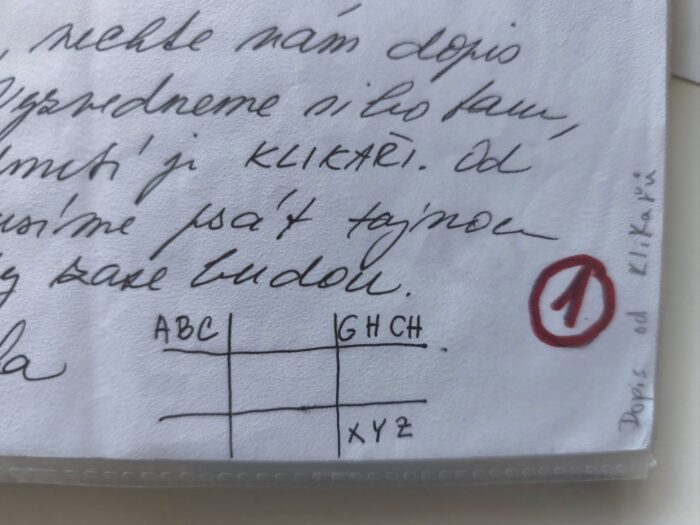 , nechte nám dopis
Vyzvedneme si ho tam,
ji KLIKAŘI. Od
psát tajnou
zase budou.
ABC
GHCH
XYZ
1
Dopis od Klikařů